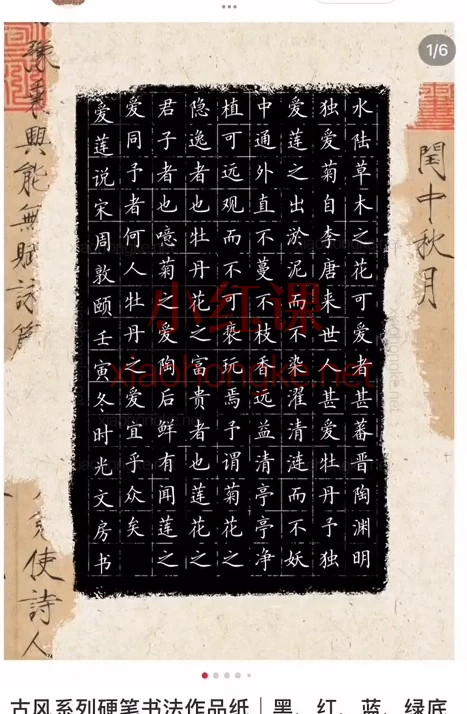 1/6
閏中秋月
水陆草木之花可爱者甚蕃晋陶渊明
独爱菊自李唐来世人甚爱牡丹予独
爱莲之出淤泥而不染濯清涟而不妖
中通外直不蔓不枝香远益清亭亭净
植可远观而不可亵玩焉予谓菊花之
隐逸者也牡丹花之富贵者也莲花之
君子者也噫菊之爱陶后鲜有闻莲之
爱同予者何人牡丹之爱宜乎众矣
爱莲说宋周敦颐壬寅冬时光文房书
興能無賦詠篇
使詩人
小红课
xiaohongke.net
古风系列硬笔书法作品纸｜黑、红、蓝、绿底